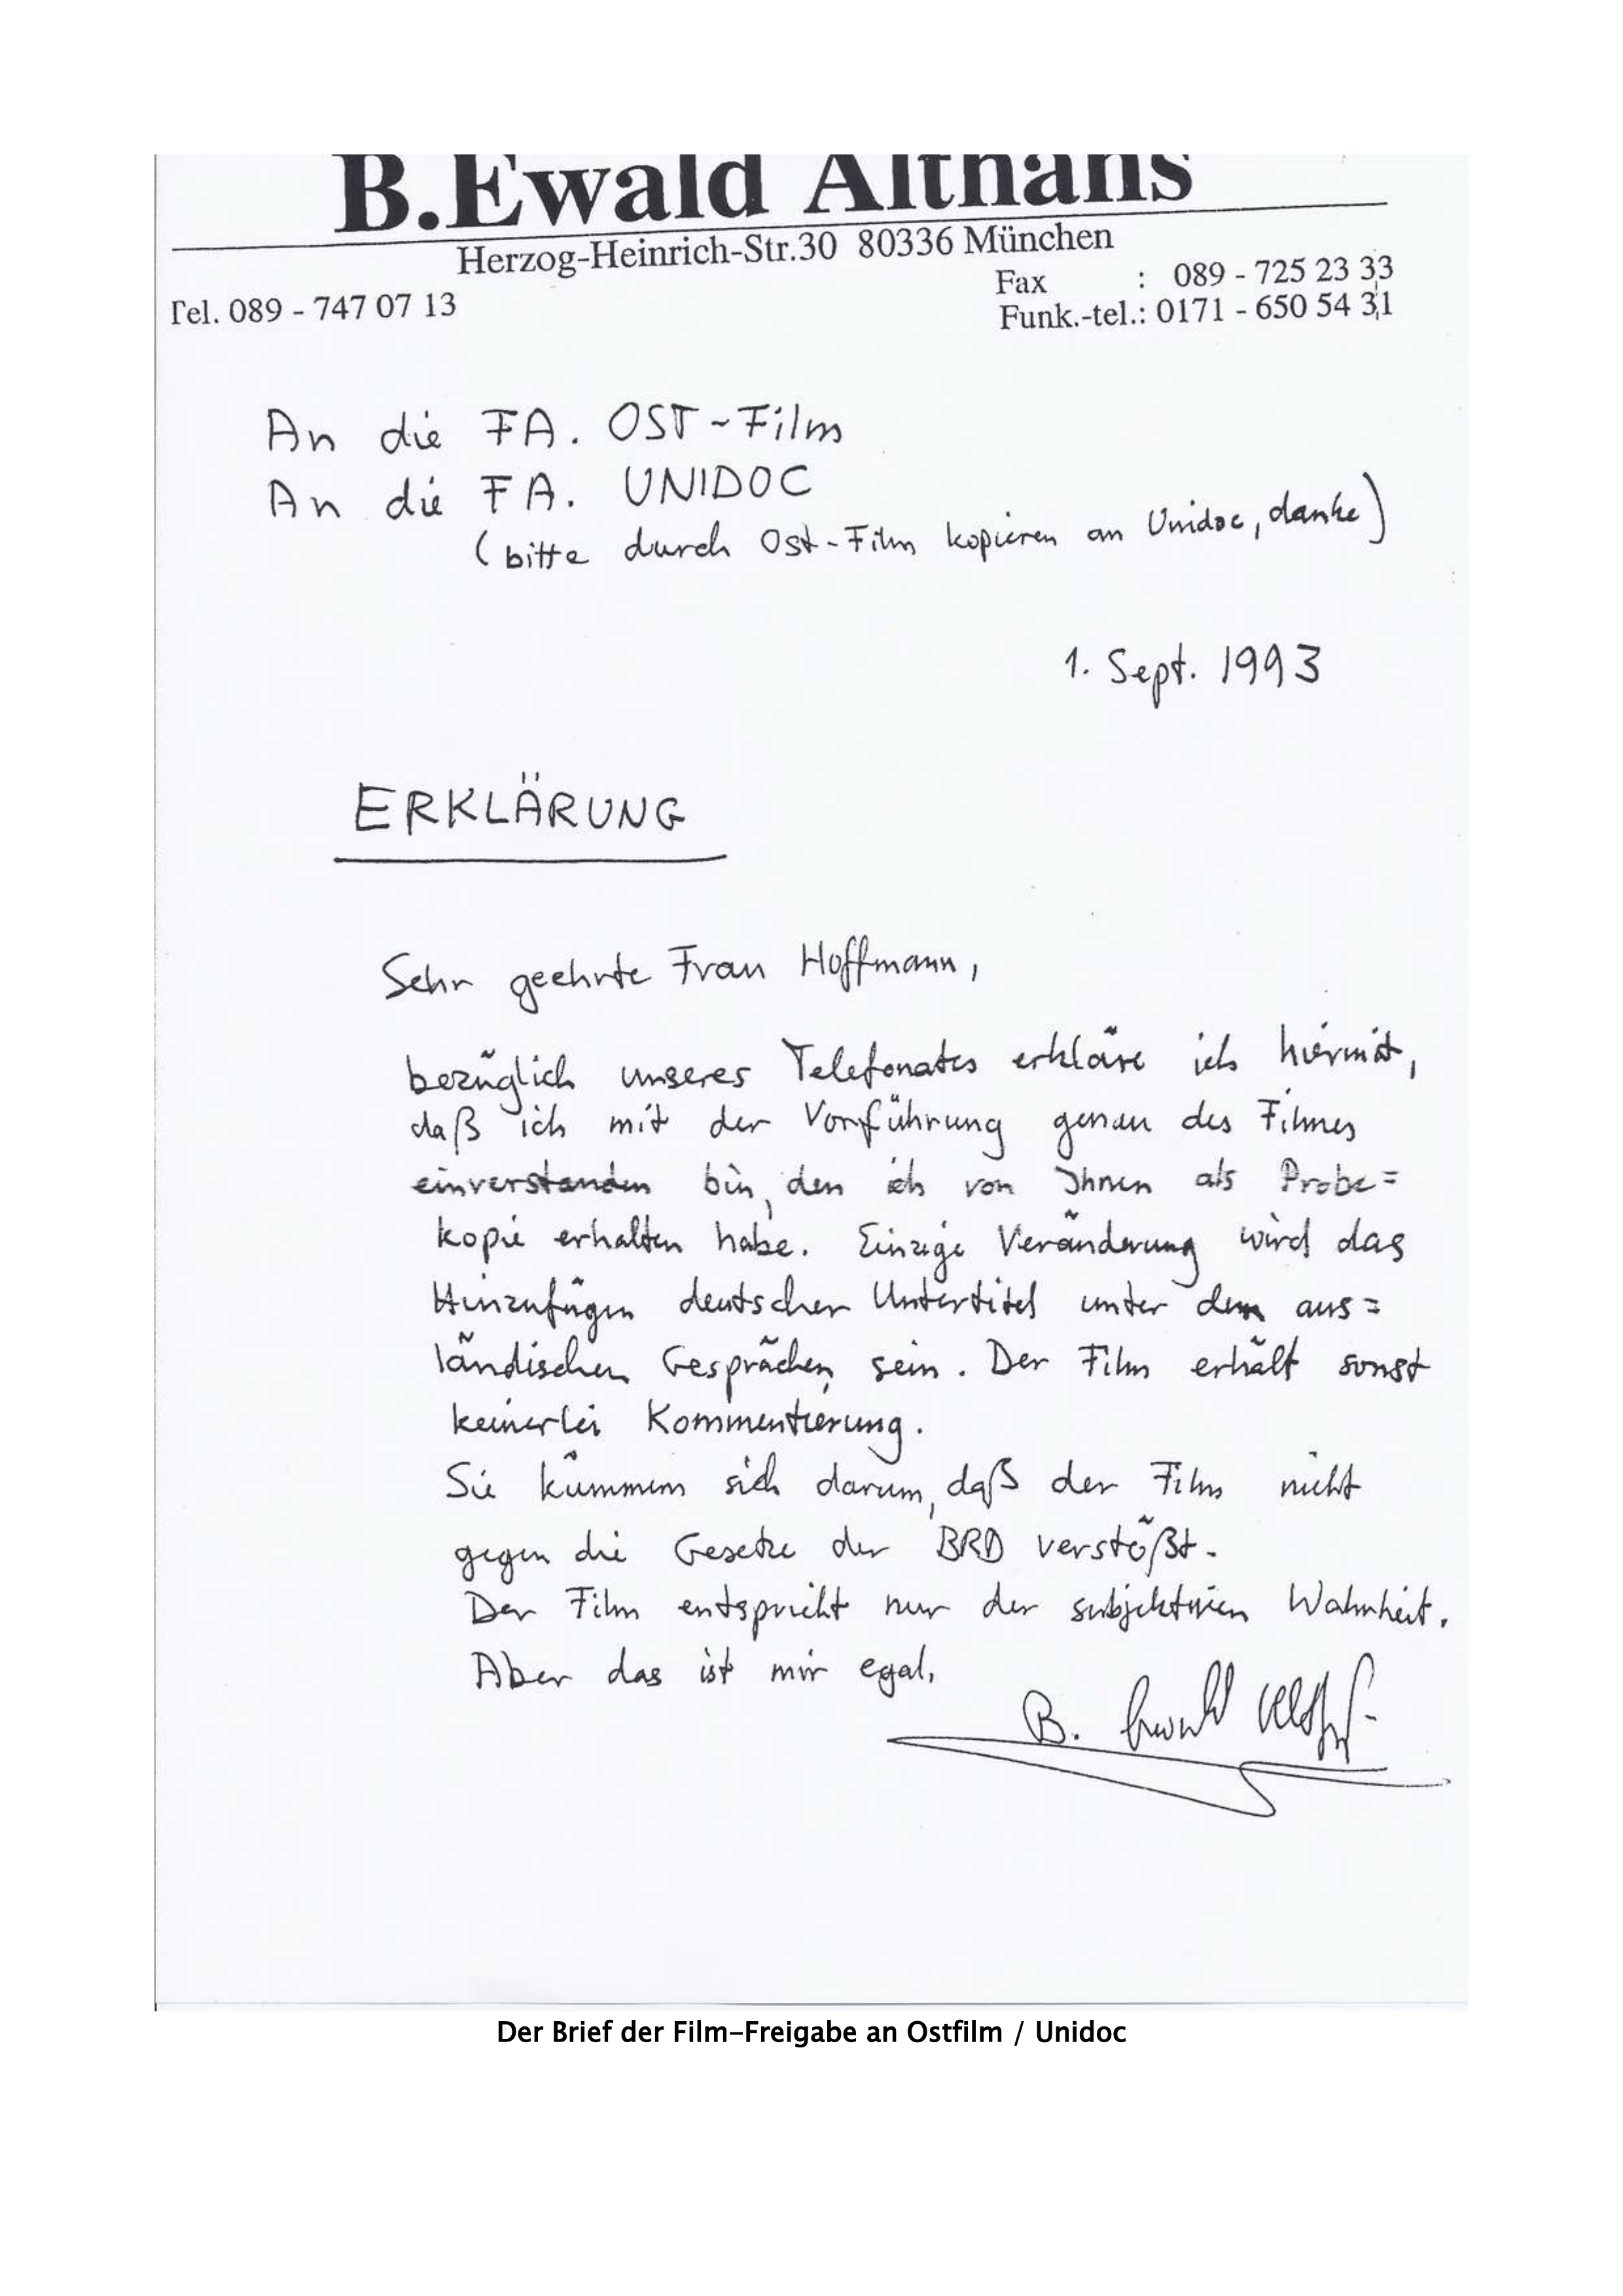 B.Ewald Althans
Herzog-Heinrich-Str.30 80336 München
Tel. 089 - 747 07 13
Fax : 089 - 725 23 33
Funk.-tel.: 0171 - 650 54 31
An die FA. OST-Film
An die FA. UNIDOC
(bitte durch Ost-Film kopieren an Unidoc, danke)
1. Sept. 1993
ERKLÄRUNG
Sehr geehrte Frau Hoffmann,
bezüglich unseres Telefonates erkläre ich hiermit,
daß ich mit der Vorführung genau des Filmes
einverstanden bin, den ich von Ihnen als Probe=
kopie erhalten habe. Einzige Veränderung wird das
Hinzufügen deutscher Untertitel unter dem aus=
ländischen Gesprächen sein. Der Film erhält sonst
keinerlei Kommentierung.
Sie kümmern sich darum, daß der Film nicht
gegen die Gesetze der BRD verstößt.
Der Film entspricht nur der subjektiven Wahrheit.
Aber das ist mir egal.
B. Ewald Althans
Der Brief der Film-Freigabe an Ostfilm / Unidoc